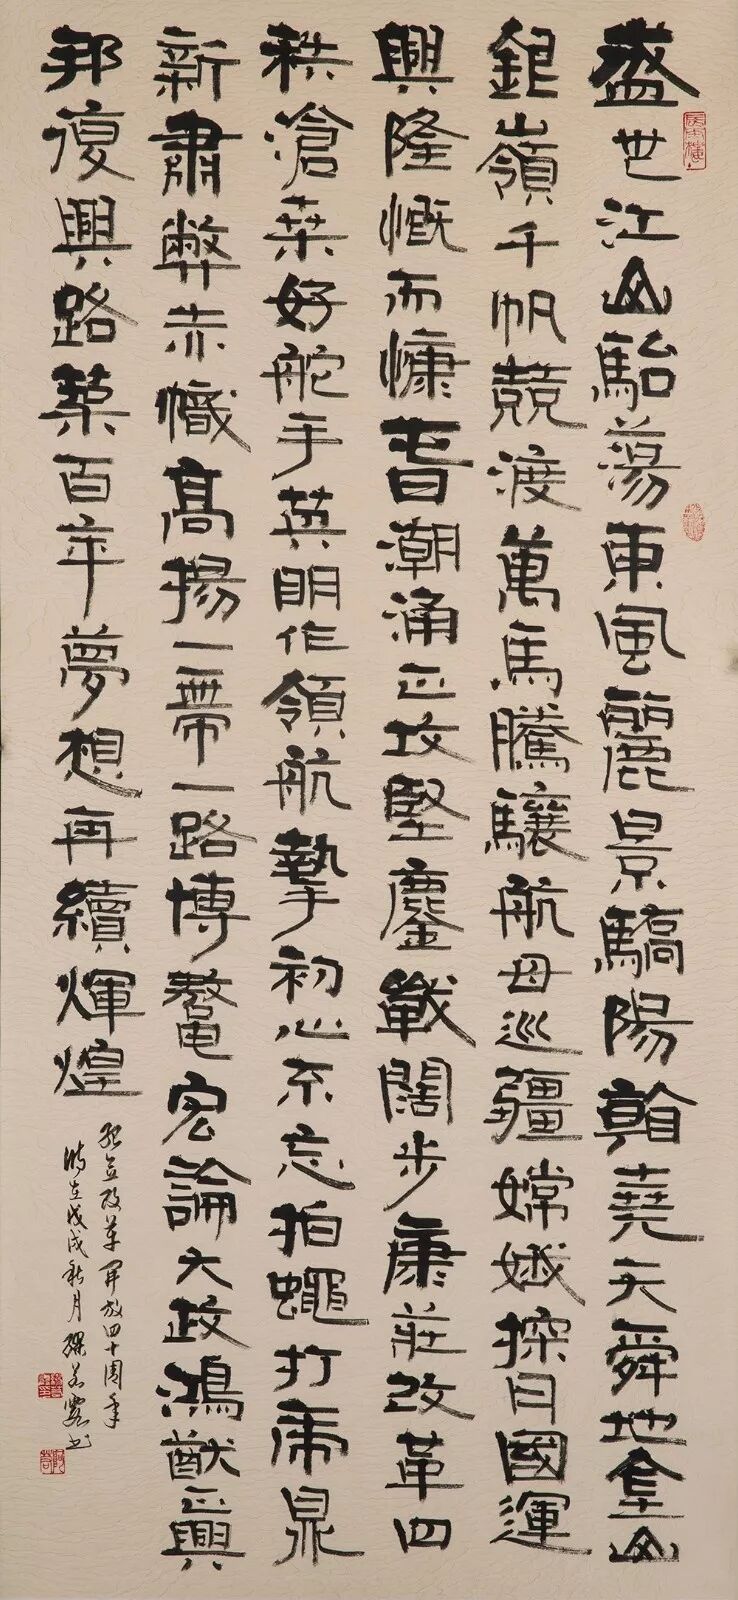 盛世江山駘蕩東風麗景驕陽韶堯天舜地金山
銀嶺千帆競渡萬馬騰驤航母巡疆嫦娥探月國運
興隆慨而慷看潮涌正攻堅鏖戰闊步康莊改革四
秩滄桑好舵手英明作領航擎初心不忘拍蠅打虎梟
新肅弊赤幟高揚一帶一路博鰲宏論大政鴻猷正興
邦復興路築百年夢想再續輝煌
改革開放四十周年
時在戊戌秋月 書